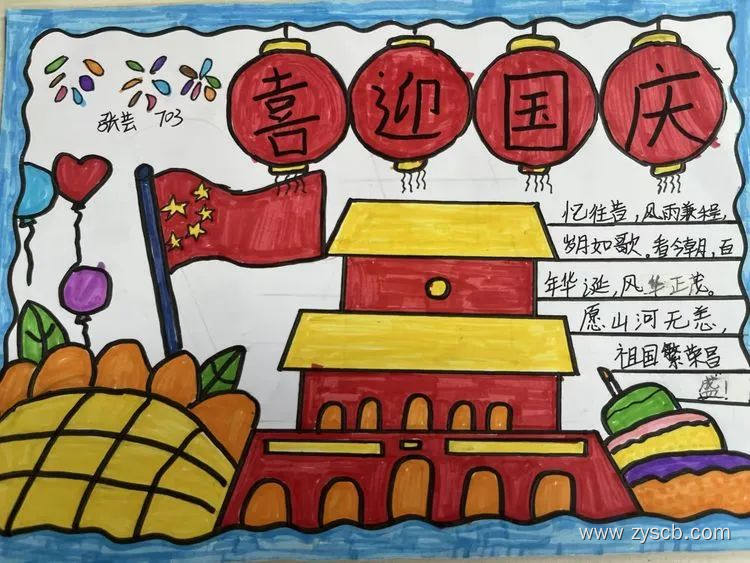 喜迎国庆
张芸 703
忆往昔,风雨兼程,
岁月如歌。看今朝,百
年华诞,风华正茂。
愿山河无恙,
祖国繁荣昌
盛!
www.zyscb.com